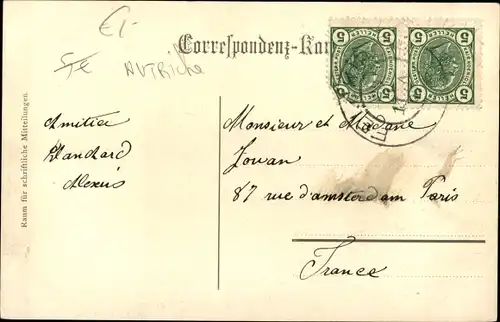 €-
5,-€
AUTRiche
Correspondenz-Kar
5 5 5 5
HELLER HELLER
Raum für schriftliche Mitteilungen.
Amitiés
Blanchard
Alexis
Monsieur et Madame
Jouan
87 rue d'amsterdam Paris
France